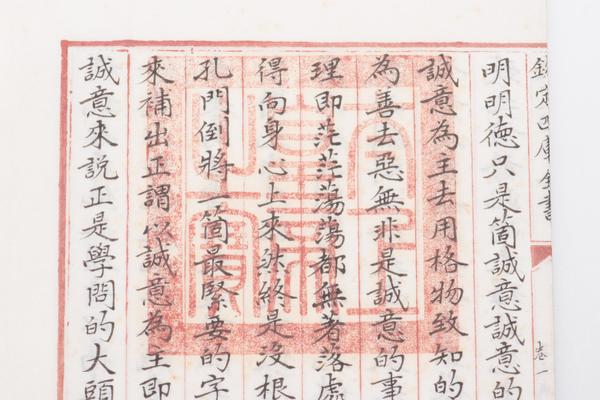 欽定四庫全書
卷一
明明德只是箇誠意誠意的
誠意為主去用格物致知的
為善去惡無非是誠意的事
理即茫茫蕩蕩都無著落處
得向身心上來然終是沒根
孔門倒將一箇最緊要的字
來補出正謂以誠意為主即
誠意來説正是學問的大頭